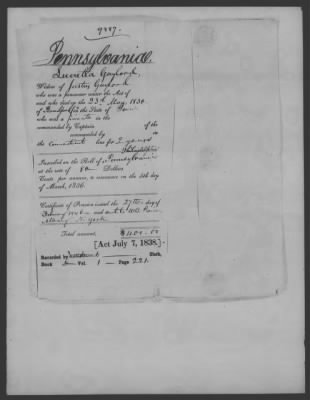 9887.
Pennsylvania.
Lucretia Gaylord,
Widow of Justus Gaylord
who was a pensioner under the Act of
and who died on the 23d May, 1830
of Bradford in the State of Penn
who was a private in the
commanded by Captain of the
commanded by in
the Connecticut line for 2 years
Inscribed on the Roll of Pennsylvania
at the rate of 80 Dollars
Cents per annum, to commence on the 4th day
of March, 1836.
Certificate of Pension issued the 27th day of
and sent to
Albany N. York
Total amount, $400.00
[Act July 7, 1838.]
Recorded by Clerk,
Book Vol. 1 Page 221.